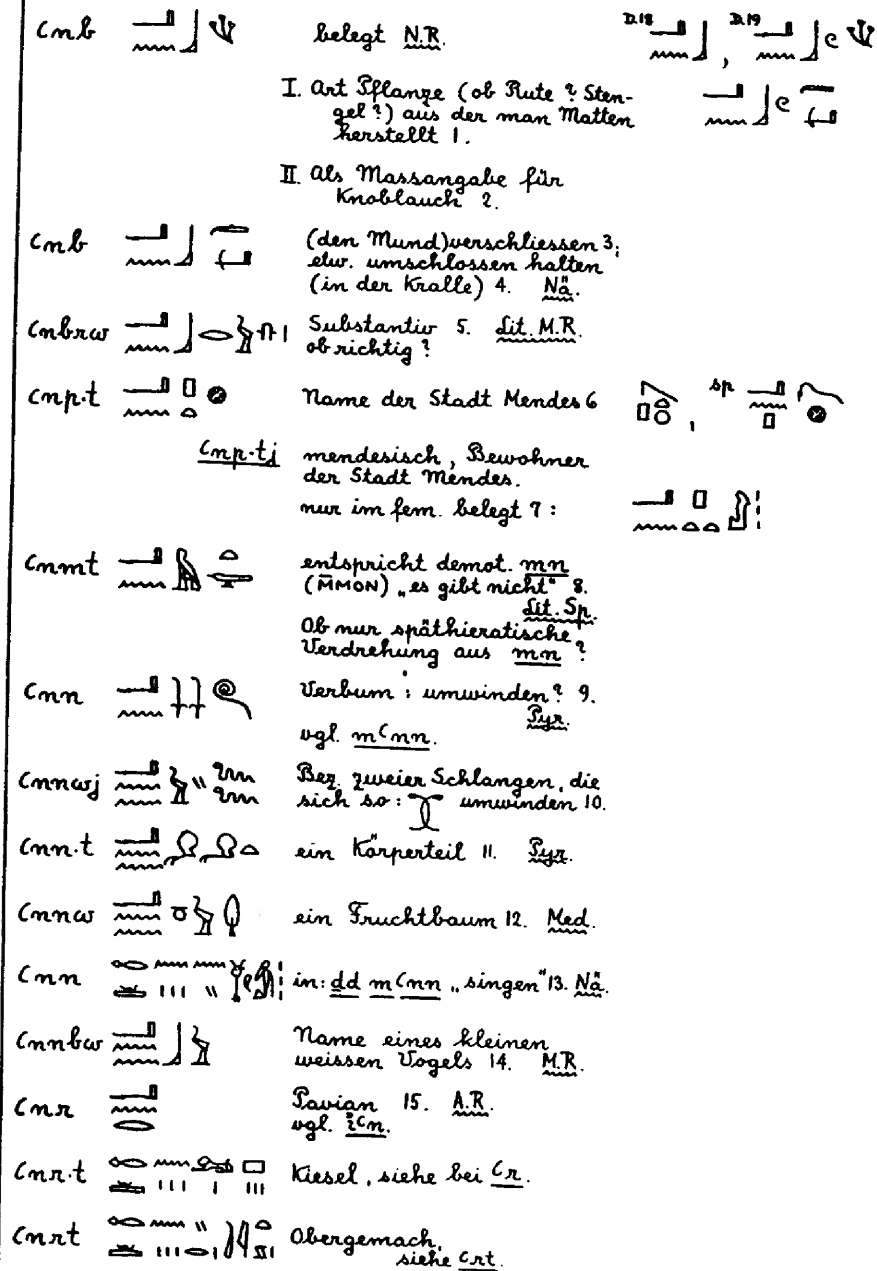 ꜥnb belegt N.R. D.18 , D.19
I. Art Pflanze (ob Rute? Sten-
gel?) aus der man Matten
herstellt 1.
II. Als Massangabe für
Knoblauch 2.
ꜥnb (den Mund) verschliessen 3;
etw. umschlossen halten
(in der Kralle) 4. Nä.
ꜥnbrw Substantiv 5. Lit. M.R.
ob richtig?
ꜥnp.t Name der Stadt Mendes 6 , Sp
ꜥnp.tj mendesisch, Bewohner
der Stadt Mendes.
nur im fem. belegt 7:
ꜥnmt entspricht demot. mn
(M̄MON) „es gibt nicht" 8.
Lit. Sp.
Ob nur späthieratische
Verdrehung aus mn?
ꜥnn Verbum: umwinden? 9.
Pyr.
vgl. mꜥnn.
ꜥnnwj Bez. zweier Schlangen, die
sich so: umwinden 10.
ꜥnn.t ein Körperteil 11. Pyr.
ꜥnnw ein Fruchtbaum 12. Med.
ꜥnn in: dd mꜥnn „singen" 13. Nä.
ꜥnnbw Name eines kleinen
weissen Vogels 14. M.R.
ꜥnr Pavian 15. A.R.
vgl. iꜥn.
ꜥnr.t Kiesel, siehe bei ꜥr.
ꜥnrt Obergemach,
siehe ꜥrt.